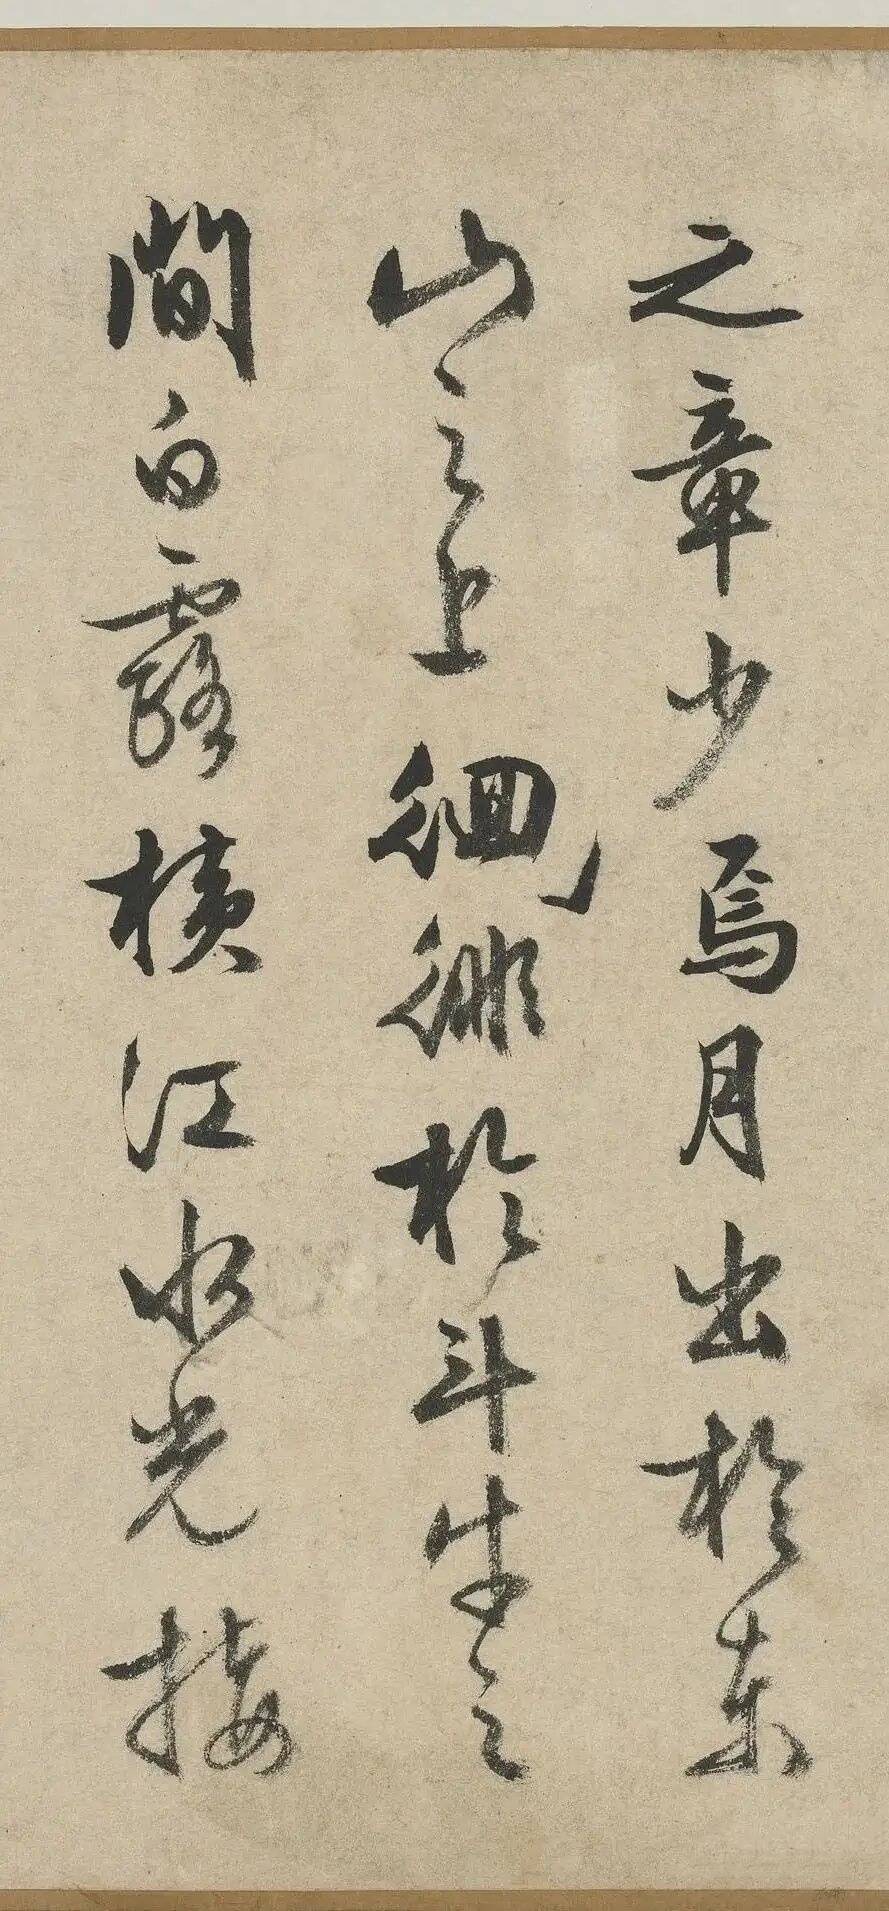 之章少焉月出於東
山之上徊徘於斗牛之
間白露橫江水光接